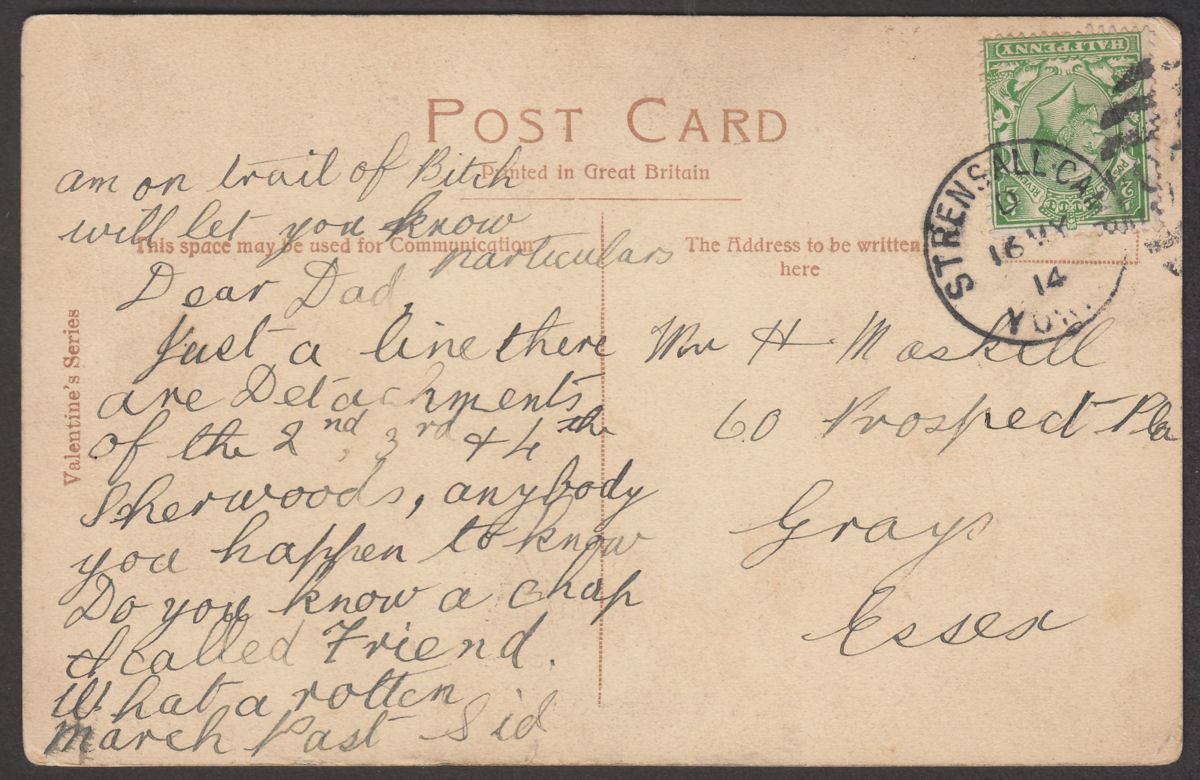 POST CARD
Printed in Great Britain
This space may be used for Communication
The Address to be written
here
Valentine's Series
HALFPENNY
STRENSALL CAMP
16 MY
14
am on trail of Bitch
will let you know
particulars
Dear Dad
Just a line there
are Detachments
of the 2nd, 3rd & 4th
Sherwoods, anybody
you happen to know
Do you know a chap
called Friend.
What a rotten
March Past Sid
H Maskell
60 Prospect Pla
Grays
Essex